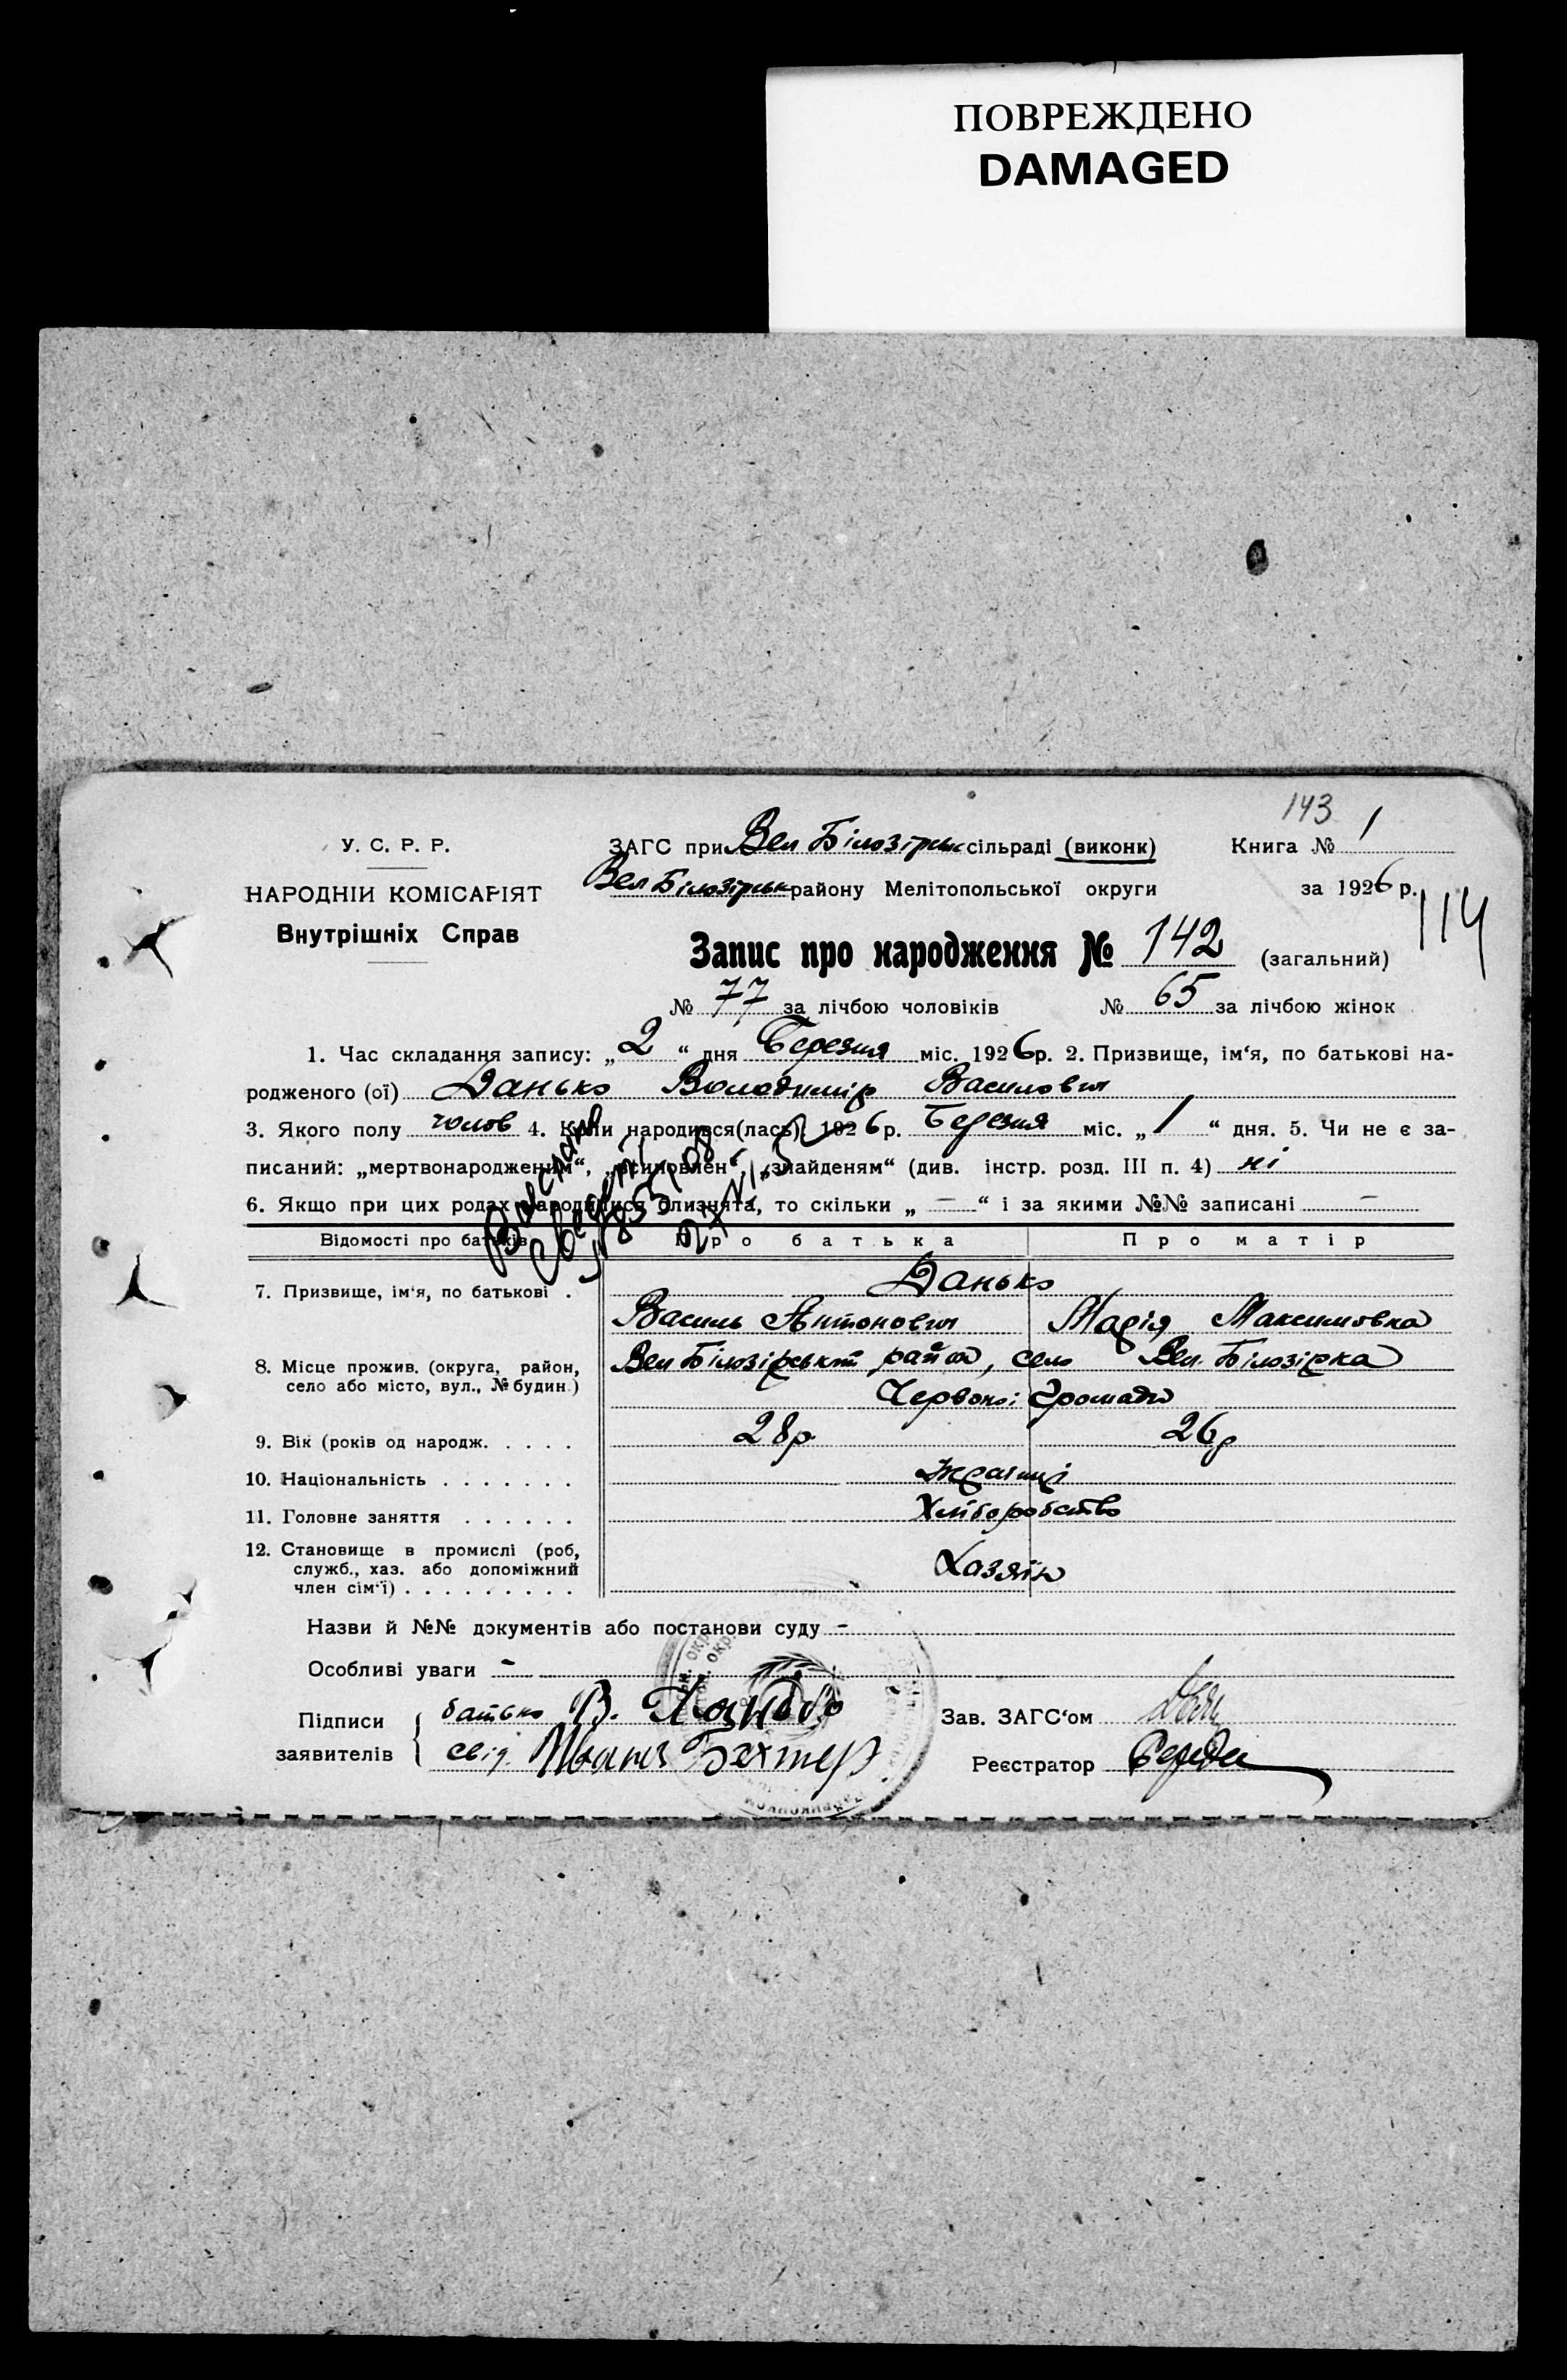 ПОВРЕЖДЕНО
DAMAGED
143
У. С. Р. Р.
НАРОДНІЙ КОМІСАРІЯТ
Внутрішніх Справ
ЗАГС при Вел Білозірськ сільраді (виконк)
Книга № 1
Вел Білозірськ району Мелітопольської округи
за 1926 р.
114
Запис про народження № 142 (загальний)
№ 77 за лічбою чоловіків № 65 за лічбою жінок
1. Час складання запису: „2“ дня Березня міс. 1926р. 2. Призвище, ім‘я, по батькові на-
родженого (ої) Данько Володимір Василович
3. Якого полу чолов 4. Коли народився(лась) 1926 р. Березня міс. „1“ дня. 5. Чи не є за-
писаний: „мертвонародженим“, „всиновлен“, „знайденям“ (див. інстр. розд. III п. 4) ні
6. Якщо при цих родах народилися близнята, то скільки „—“ і за якими №№ записані —
Відомості про батьків Про батька Про матір
7. Призвище, ім‘я, по батькові . Данько
Василь Антонович Марія Максимовна
8. Місце прожив. (округа, район, село або місто, вул., № будин.) Вел Білозірськ район, село Вел. Білозірка
Червоної Громади
9. Вік (років од народж. . . . . 28р 26р
10. Національність . . . . . . . Українці
11. Головне заняття . . . . . . Хліборобство
12. Становище в промислі (роб,
служб., хаз. або допоміжний
член сім‘ї) . . . . . . . . . Хазяїн
Назви й №№ документів або постанови суду -
Особливі уваги -
Підписи
заявителів
батько В. Данько
свід. Иван Бехтер
Зав. ЗАГС‘ом
Реєстратор Середа